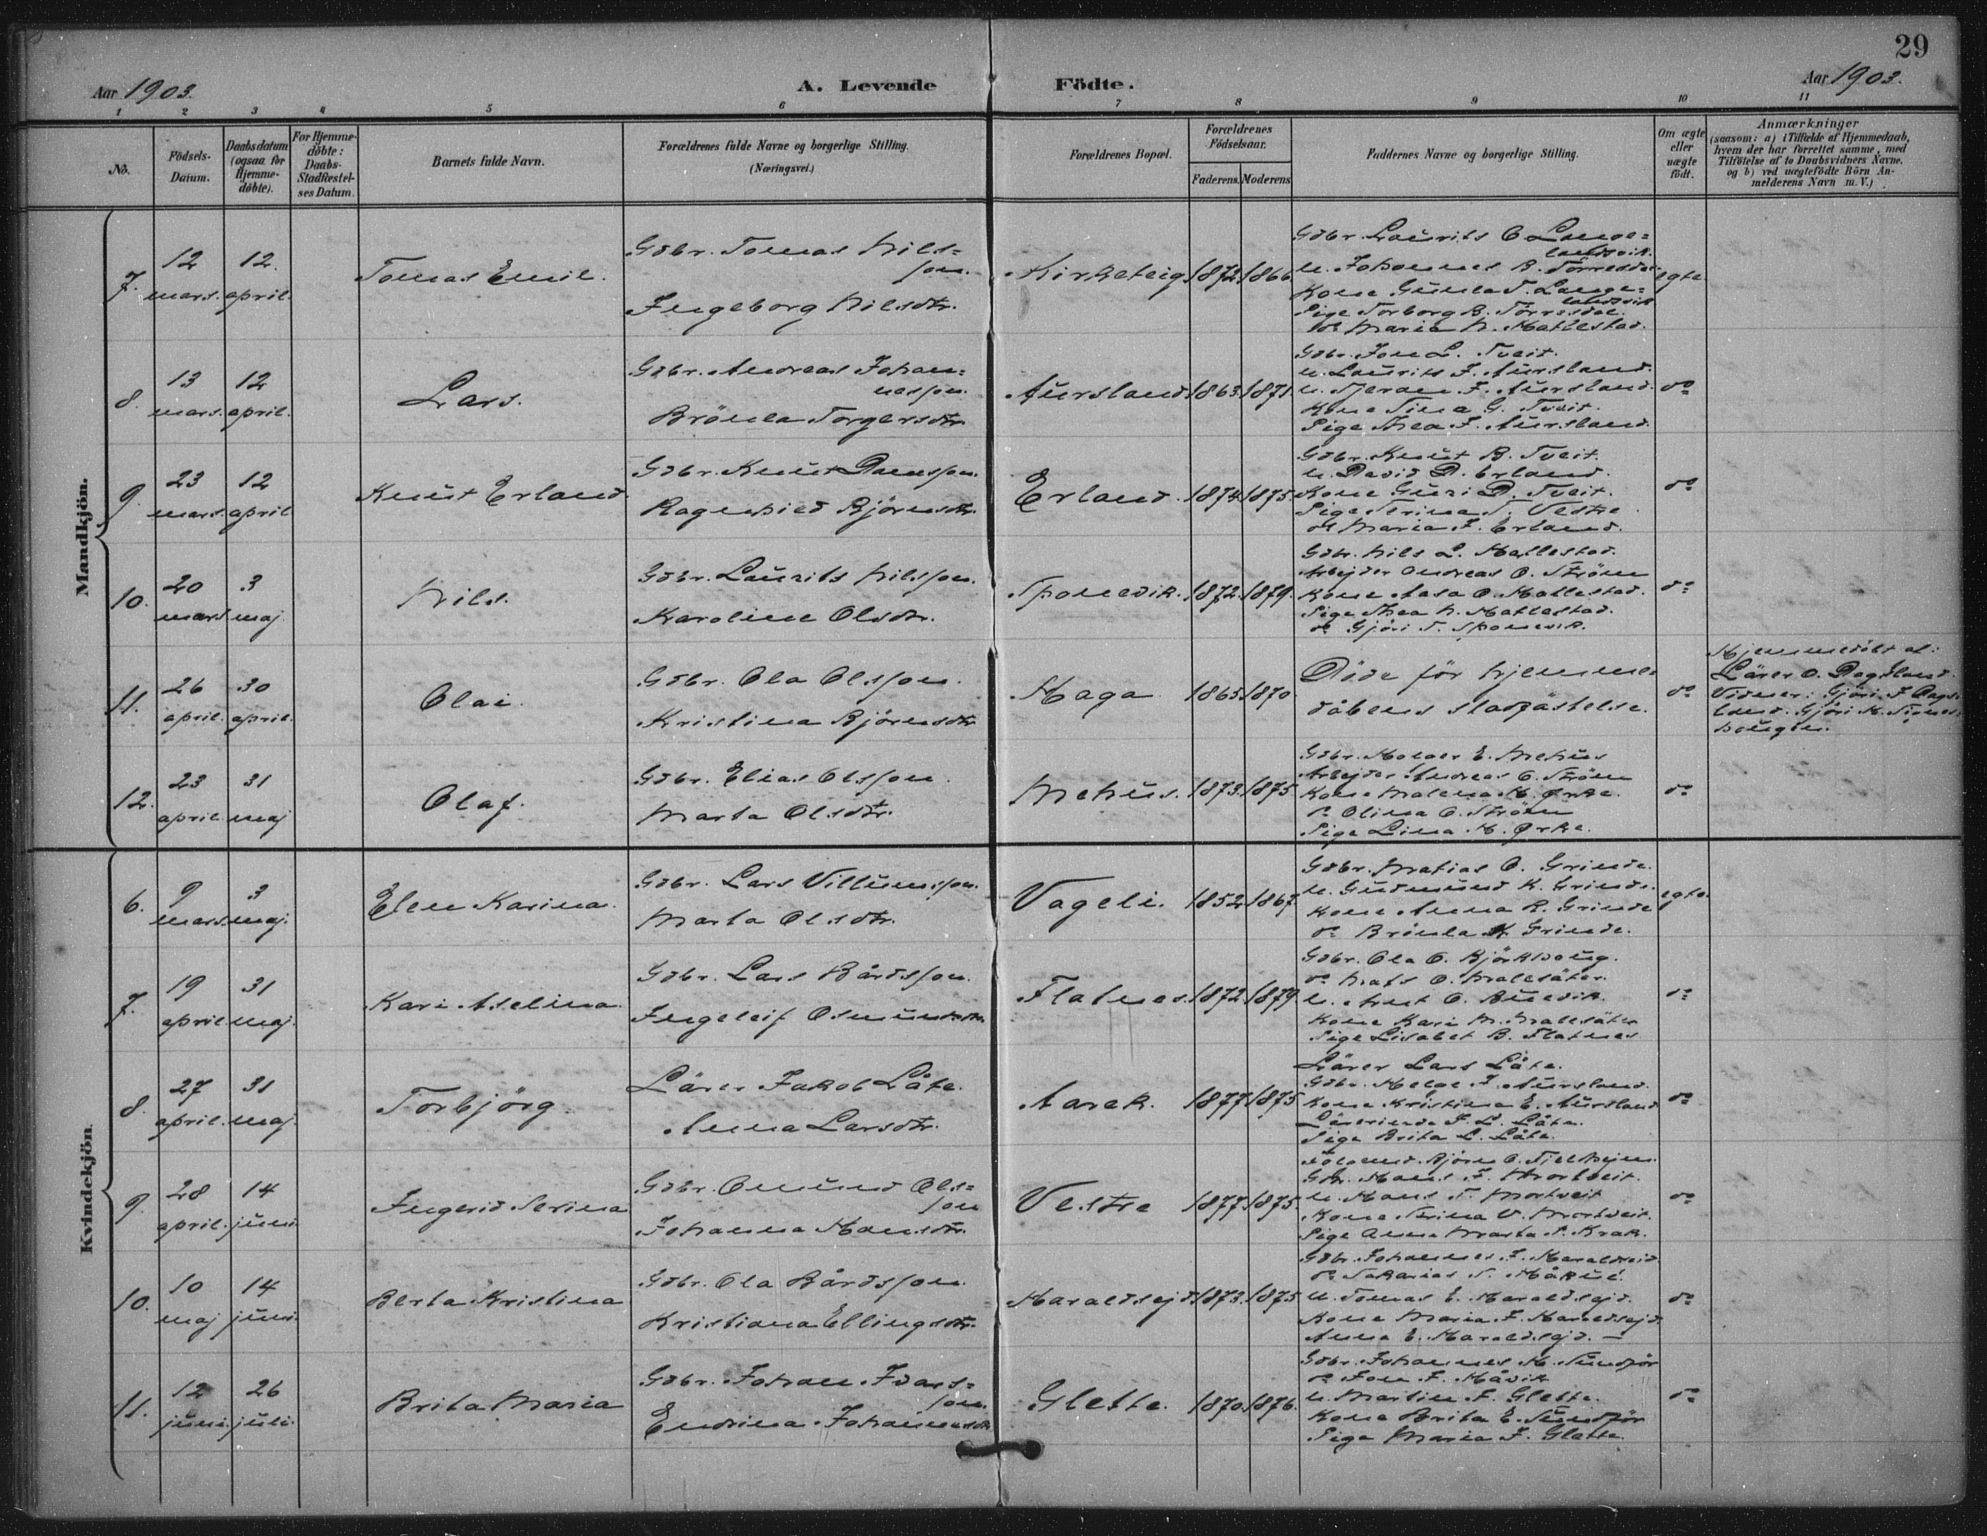 29
Aar 1903.
A. Levende Födte.
Aar 1903.
1 2 3 4 5 6 7 8 9 10 11
No.
Födsels-Datum.
Daabsdatum (ogsaa for Hjemme-döbte).
For Hjemme-döbte: Daabs-Stadfæstel-ses Datum.
Barnets fulde Navn.
Forældrenes fulde Navne og borgerlige Stilling.
(Næringsvei.)
Forældrenes Bopæl.
Forældrenes Födselsaar.
Faderens. Moderens
Faddernes Navne og borgerlige Stilling.
Om ægte eller uægte födt.
Anmærkninger
(saasom: a) i Tilfælde af Hjemmedaab, hvem der har forrettet samme, med Tilföielse af to Daabsvidners Navne. og b) ved uægtefödte Börn An-melderens Navn m. V.)
Mandkjön.
7. 12 mars. 12. april. Tomas Emil.
Gdbr. Tomas Nils=
son.
Ingeborg Nilsdtr.
Kirketeig 1872. 1866
Gdbr. Laurits O. Lange=
landsvik.
U. Johannes B. Törresdal
Kone Gunla T. Lange=
landsvik
Pige Torborg B. Törresdal.
do Maria N. Matlestad.
egte
8. 13 mars. 12 april. Lars.
Gdbr. Andreas Johan=
nesson.
Brönla Torgersdtr.
Aursland. 1863. 1871.
Gdbr. Jon L. Tveit.
U. Laurits J. Aursland.
U. J. Aursland.
Kone Sina G. Tveit.
Pige Thea J. Aursland.
do
9. 23 mars 12 april Knut Erland
Gdbr. Knut Dansson.
Ragnhild Björnsdtr.
Erland. 1874. 1875.
Gdbr. Knut B. Tveit.
U. David D. Erland.
Kone Guri D. Tveit.
Pige Serina S. Vestre
do Maria J. Erland.
do
10. 20 mars 3 maj. Nils.
Gdbr. Laurits Nilsson.
Karoline Olsdtr.
Sponevik. 1872. 1879.
Gdbr. Nils L. Matlestad.
Arbejder Andreas O. Ström
Kone Aasa O. Matlestad.
Pige Thea N. Matlestad.
do Gjöri T. Sponevik.
do
11. 26 april. 30 april. Olai.
Gdbr. Ola Olsson.
Kristina Björnsdtr
Haga 1865. 1870
Döde för hjemme=
dåbens stadfästelse.
do
Hjemmedöbt af:
Lärer O. Dagsland.
Vidner: Gjöri J. Dags=
land. Gjöri H.
12. 23 april. 31 maj Olaf.
Gdbr. Elias Olsson.
Marta Olsdtr.
Mehus. 1873. 1875.
Gdbr. Holger E. Mehus
Arbejder Andreas O. Ström
Kone Malena H. Ørke.
do Olina O. Ström
Pige Lina H. Ørke.
do
Kvindekjön.
6. 9 mars. 3 maj. Elen Karina.
Gdbr. Lars Villumsson.
Marta Olsdtr.
Vageli. 1852. 1867.
Gdbr. Matias O. Grinde.
U. Gudmund K. Grinde.
Kone Anna R. Grinde
do Brönla K. Grinde.
egte.
7. 19 april. 31 maj. Kari Aselina.
Gdbr. Lars Bårdsson.
Ingeleif Osmundsdtr.
Flatnes. 1872. 1879.
Gdbr. Ola O. Björkhoug.
do Mats O. Malesäter.
U. Arnt O.
Kone Kari M. Malesäter
Pige Lisabet B. Flatnes.
do
8. 27 april. 31 maj. Torbjörg.
Lärer Jakob Låte.
Anna Larsdtr.
Aarek. 1877. 1875.
Lärer Lars Låte.
Gdbr. Helge J. Aursland.
Kone Kristina E. Aursland
Lärerinde J. L. Låte.
Pige Brita L. Låte.
do
9. 28 april. 14 juni. Ingerid Serina
Gdbr. Omund Ols=
son
Johanna Hansdtr.
Vestre 1877. 1875.
Björn O.
Gdbr. Hans J. Mortveit.
U. Hans T. Mortveit
Kone Serina V. Mortveit.
Pige Anna Marta P. Krak.
do
10. 10 maj 14 juni. Berta Kristina
Gdbr. Ola Bårdsson.
Kristiana Ellingsdtr.
Haraldsejd 1873. 1875
Gdbr. Johannes J. Haraldseid
do Sakarias S.
U. Tomas E. Haraldsejd.
Kone Maria J. Haraldsejd
Anna E. Haraldsejd. —
do
11. 12 juni. 26 juli. Brita Maria
Gdbr. Johan Ivars=
son.
Endrina Johannesdtr
Glette. 1870. 1876.
Gdbr. Johannes H. Sundför
do Jon J. Håvik
U. Martin J. Glette.
Kone Brita E. Sundför
Pige Maria J. Glette
do